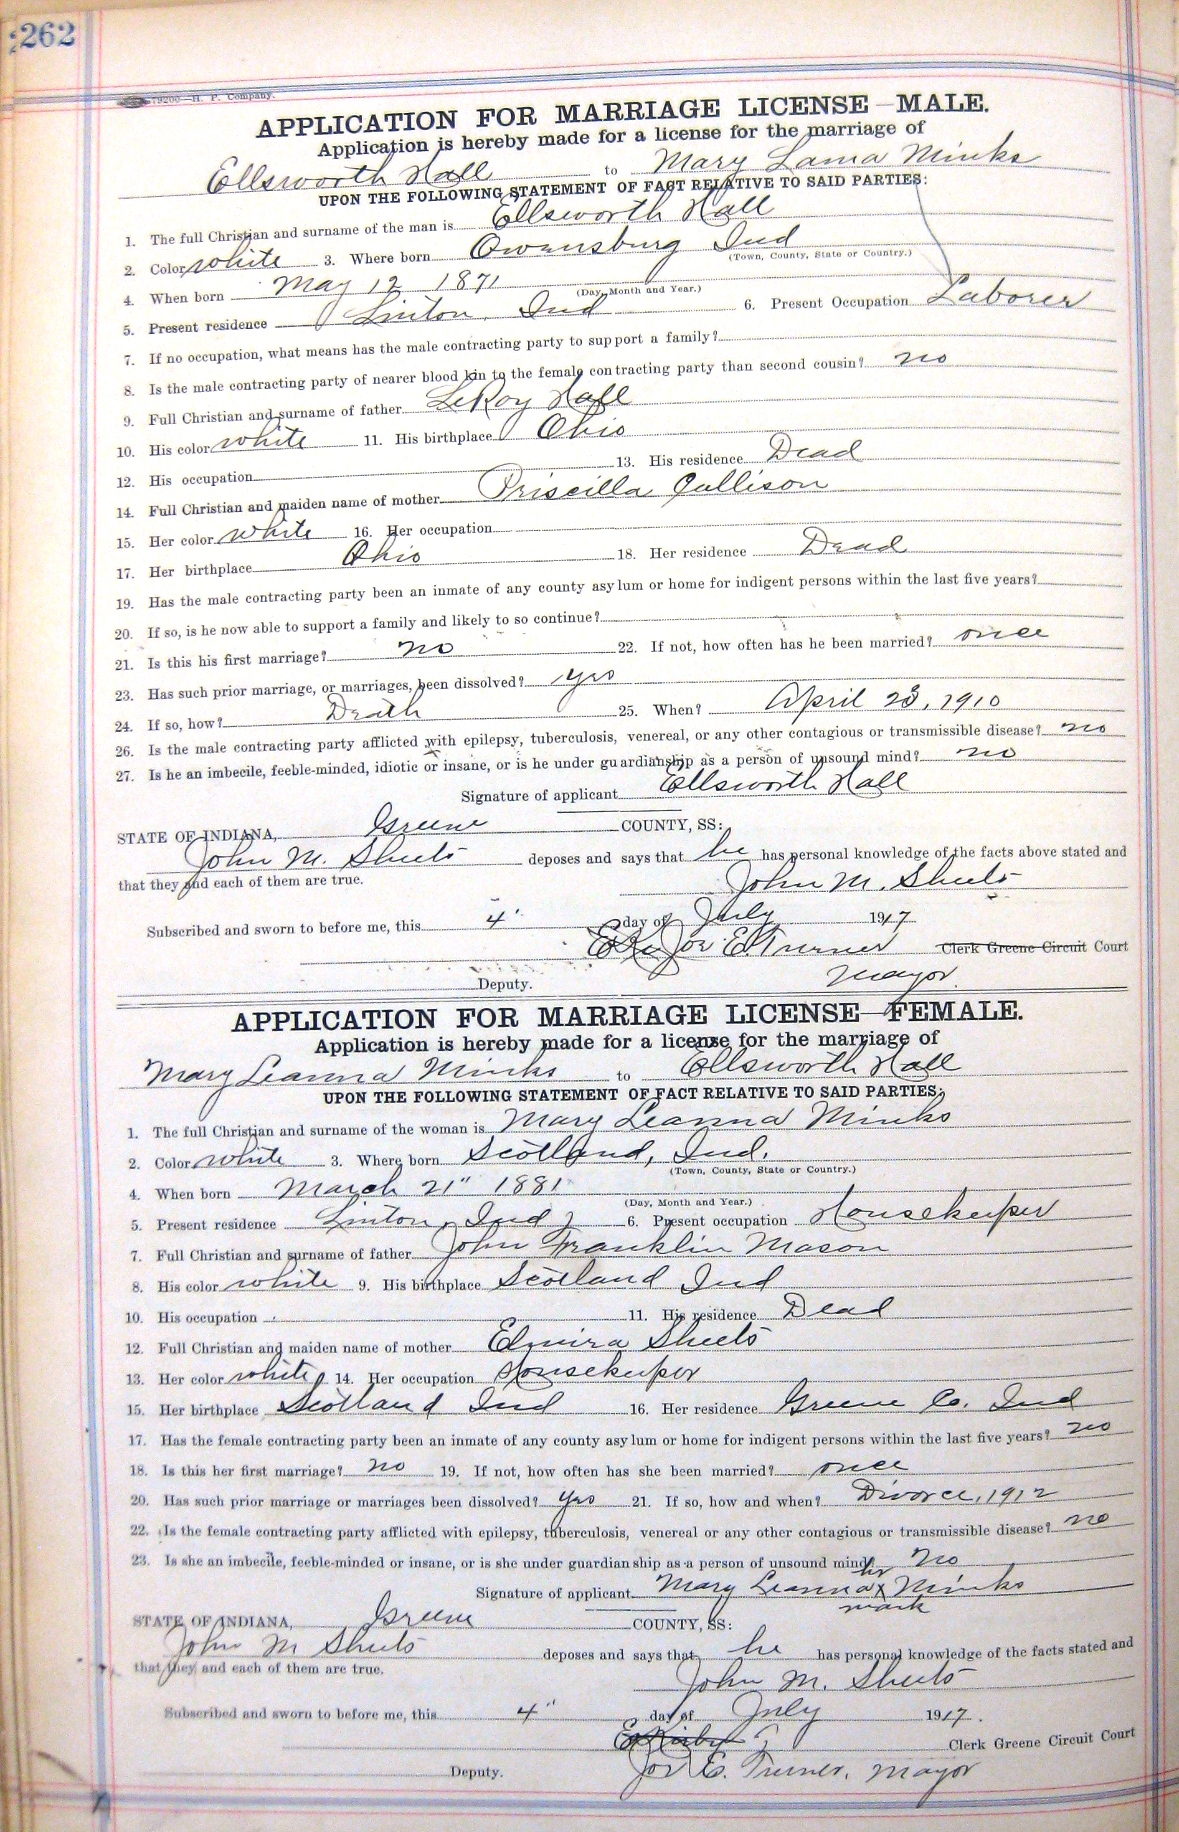 262
79200—H. P. Company.
APPLICATION FOR MARRIAGE LICENSE—MALE.
Application is hereby made for a license for the marriage of
Ellsworth Hall to Mary Lanna Minks
UPON THE FOLLOWING STATEMENT OF FACT RELATIVE TO SAID PARTIES:
1. The full Christian and surname of the man is Ellsworth Hall
2. Color white 3. Where born Owensburg Ind
(Town, County, State or Country.)
4. When born May 12 1871
(Day, Month and Year.)
5. Present residence Linton, Ind 6. Present Occupation Laborer
7. If no occupation, what means has the male contracting party to support a family?
8. Is the male contracting party of nearer blood kin to the female contracting party than second cousin? no
9. Full Christian and surname of father LeRoy Hall
10. His color white 11. His birthplace Ohio
12. His occupation 13. His residence Dead
14. Full Christian and maiden name of mother Priscilla Gullison
15. Her color white 16. Her occupation
17. Her birthplace Ohio 18. Her residence Dead
19. Has the male contracting party been an inmate of any county asylum or home for indigent persons within the last five years?
20. If so, is he now able to support a family and likely to so continue?
21. Is this his first marriage? no 22. If not, how often has he been married? once
23. Has such prior marriage, or marriages, been dissolved? yes
24. If so, how? Death 25. When? April 23, 1910
26. Is the male contracting party afflicted with epilepsy, tuberculosis, venereal, or any other contagious or transmissible disease? no
27. Is he an imbecile, feeble-minded, idiotic or insane, or is he under guardianship as a person of unsound mind? no
Signature of applicant Ellsworth Hall
STATE OF INDIANA, Greene COUNTY, SS:
John M. Sheets deposes and says that he has personal knowledge of the facts above stated and
that they and each of them are true. John M. Sheets
Subscribed and sworn to before me, this 4" day of July 1917
Joe E. Turner Clerk Greene Circuit Court
Mayor.
Deputy.
APPLICATION FOR MARRIAGE LICENSE—FEMALE.
Application is hereby made for a license for the marriage of
Mary Leanna Minks to Ellsworth Hall
UPON THE FOLLOWING STATEMENT OF FACT RELATIVE TO SAID PARTIES:
1. The full Christian and surname of the woman is Mary Leanna Minks
2. Color white 3. Where born Scotland, Ind.
(Town, County, State or Country.)
4. When born March 21" 1881
(Day, Month and Year.)
5. Present residence Linton, Ind 6. Present occupation Housekeeper
7. Full Christian and surname of father John Franklin Mason
8. His color white 9. His birthplace Scotland Ind
10. His occupation 11. His residence Dead
12. Full Christian and maiden name of mother Elmira Sheets
13. Her color white 14. Her occupation Housekeeper
15. Her birthplace Scotland Ind 16. Her residence Greene Co. Ind
17. Has the female contracting party been an inmate of any county asylum or home for indigent persons within the last five years? no
18. Is this her first marriage? no 19. If not, how often has she been married? once
20. Has such prior marriage or marriages been dissolved? yes 21. If so, how and when? Divorce, 1912
22. Is the female contracting party afflicted with epilepsy, tuberculosis, venereal or any other contagious or transmissible disease? no
23. Is she an imbecile, feeble-minded or insane, or is she under guardianship as a person of unsound mind? no
her
Signature of applicant Mary Leanna x Minks
mark
STATE OF INDIANA, Greene COUNTY, SS:
John M Sheets deposes and says that he has personal knowledge of the facts stated and
that they and each of them are true. John M. Sheets
Subscribed and sworn to before me, this 4" day of July 1917.
Clerk Greene Circuit Court
Deputy. Joe E. Turner, Mayor